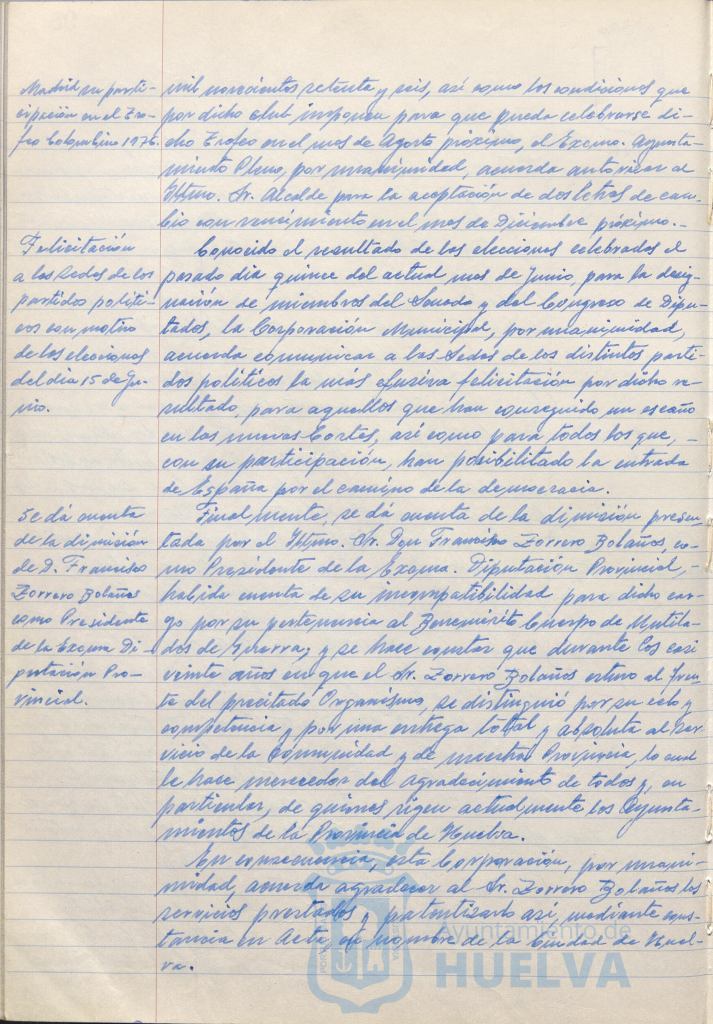 Madrid su parti-
cipación en el Tro-
feo Colombino 1976.
mil novecientos setenta y seis, así como las condiciones que
por dicho club imponen para que pueda celebrarse di-
cho Trofeo en el mes de Agosto próximo, el Excmo. Ayunta-
miento Pleno, por unanimidad, acuerda autorizar al
Iltmo. Sr. Alcalde para la aceptación de dos letras de cam-
bio con vencimiento en el mes de Diciembre próximo.-
Felicitación
a las Sedes de los
partidos políti-
cos con motivo
de las elecciones
del día 15 de Ju-
nio.
Conocido el resultado de las elecciones celebradas el
pasado día quince del actual mes de Junio, para la desig-
nación de miembros del Senado y del Congreso de Dipu-
tados, la Corporación Municipal, por unanimidad,
acuerda comunicar a las Sedes de los distintos parti-
dos políticos la más efusiva felicitación por dicho re-
sultado, para aquellos que han conseguido un escaño
en las nuevas Cortes, así como para todos los que, -
con su participación, han posibilitado la entrada
de España por el camino de la democracia.
Se dá cuenta
de la dimisión
de D. Francisco
Zorrero Bolaños
como Presidente
de la Excma Di-
putación Pro-
vincial.
Finalmente, se dá cuenta de la dimisión presen-
tada por el Iltmo. Sr. Don Francisco Zorrero Bolaños, co-
mo Presidente de la Excma. Diputación Provincial, -
habida cuenta de su incompatibilidad para dicho car-
go por su pertenencia al Benemérito Cuerpo de Mutila-
dos de Guerra, y se hace constar que durante los casi
veinte años en que el Sr. Zorrero Bolaños estuvo al fren-
te del precitado Organismo, se distinguió por su celo y
competencia y por una entrega total y absoluta al ser-
vicio de la Comunidad y de nuestra Provincia, lo cual
le hace merecedor del agradecimiento de todos y, en
particular, de quienes rigen actualmente los Ayunta-
mientos de la Provincia de Huelva.
En consecuencia, esta Corporación, por unani-
midad, acuerda agradecer al Sr. Zorrero Bolaños los
servicios prestados y patentizarlo así, mediante cons-
tancia en Acta, en nombre de la Ciudad de Huel-
va.
Ayuntamiento de
HUELVA